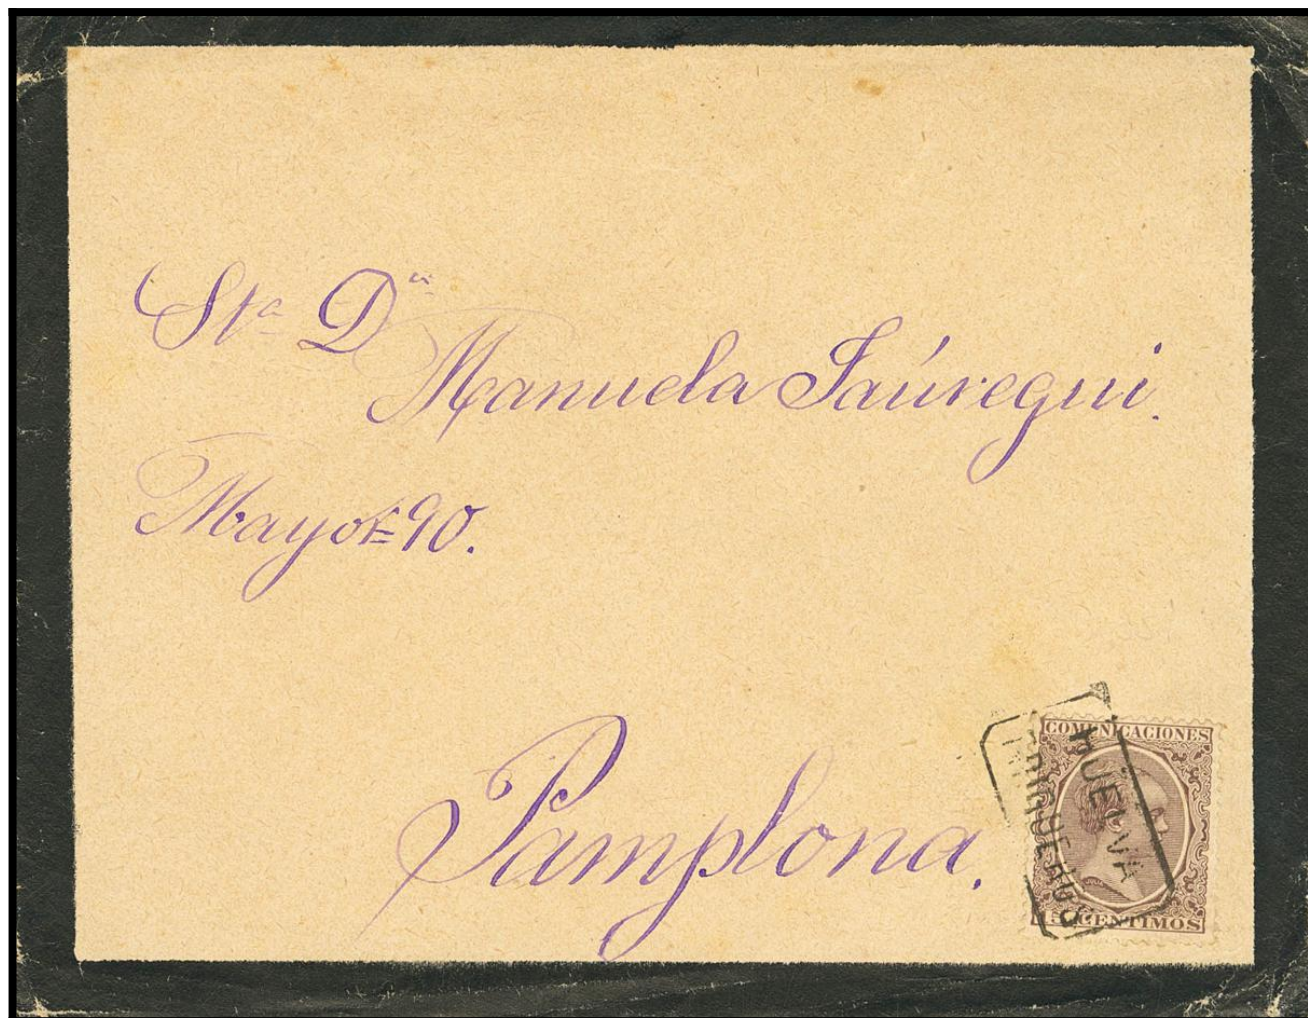 Sta Da
Manuela Jaúregui.
Mayor 90.
Pamplona.
COMUNICACIONES
HUELVA
TRIGUEROS
15 CENTIMOS